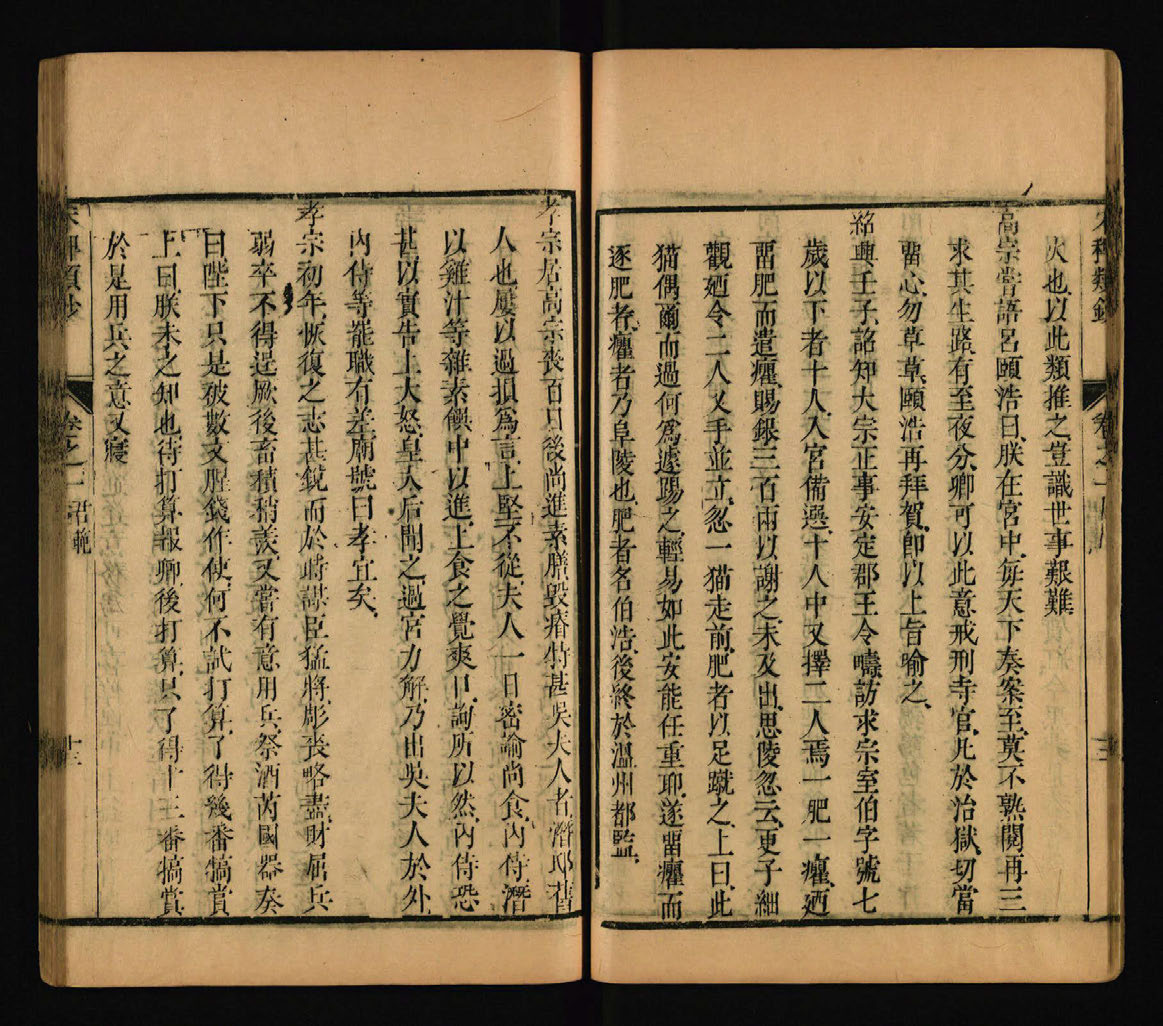 宋稗類鈔 卷之一
火也以此類推之豈識世事艱難
高宗嘗語呂頤浩曰朕在宮中每天下奏案至莫不熟閱再三
求其生路有至夜分卿可以此意戒刑寺官凡於治獄切當
畱心勿草草頤浩再拜賀卽以上旨喻之
紹興壬子詔知大宗正事安定郡王令疇訪求宗室伯字號七
歲以下者十人入宮備選十人中又擇二人焉一肥一癯廼
畱肥而遣癯賜銀三百兩以謝之未及出思陵忽云更子細
觀廼令二人叉手並立忽一猫走前肥者以足蹴之上曰此
猫偶爾而過何爲遽踢之輕易如此安能任重耶遂畱癯而
逐肥者癯者乃阜陵也肥者名伯浩後終於溫州都監
孝宗居高宗喪百日後尚進素膳毀瘠特甚吳夫人者潛邸舊
人也屢以過損爲言上堅不從夫人一日密諭尚食內侍潛
以雞汁等雜素饌中以進上食之覺爽口詢所以然內侍恐
甚以實告上大怒皇太后聞之過宮力解乃出吳夫人於外
內侍等罷職有差廟號曰孝宜矣
孝宗初年恢復之志甚銳而於時謀臣猛將彫喪略盡財屈兵
弱卒不得逞厥後畜積稍羨又嘗有意用兵祭酒芮國器奏
曰陛下只是被數文腥錢作使何不試打算了得幾番犒賞
上曰朕未之知也待打算報卿後打算只了得十三番犒賞
於是用兵之意又寢
宋稗類鈔 卷之一 君範 十三